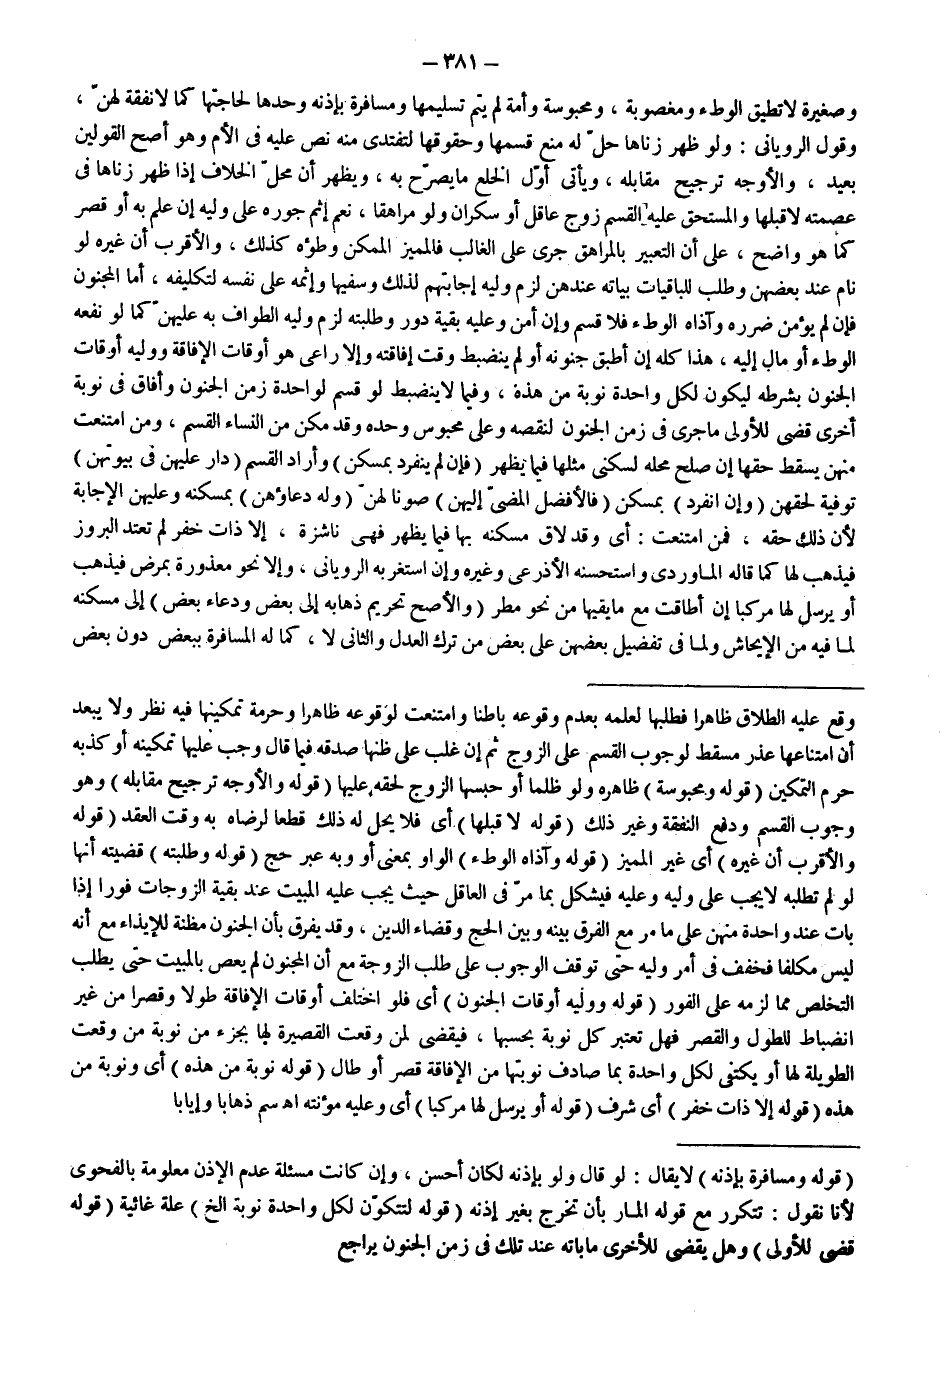 — ٣٨١ —
وصغيرة لاتطيق الوطء ومغصوبة ، ومحبوسة وأمة لم يتم تسليمها ومسافرة بإذنه وحدها لحاجتها كما لانفقة لهنّ ،
وقول الرويانى : ولو ظهر زناها حلّ له منع قسمها وحقوقها لتفتدى منه نص عليه فى الأم وهو أصح القولين
بعيد ، والأوجه ترجيح مقابله ، ويأتى أوّل الخلع مايصرّح به ، ويظهر أن محلّ الخلاف إذا ظهر زناها فى
عصمته لاقبلها والمستحق عليه القسم زوج عاقل أو سكران ولو مراهقا ، نعم إثم جوره على وليه إن علم به أو قصر
كما هو واضح ، على أن التعبير بالمراهق جرى على الغالب فالمميز الممكن وطؤه كذلك ، والأقرب أن غيره لو
نام عند بعضهن وطلب للباقيات بياته عندهن لزم وليه إجابتهم لذلك وسفيها وإثمه على نفسه لتكليفه ، أما المجنون
فإن لم يؤمن ضرره وآذاه الوطء فلا قسم وإن أمن وعليه بقية دور وطلبته لزم وليه الطواف به عليهنّ كما لو نفعه
الوطء أو مال إليه ، هذا كله إن أطبق جنونه أو لم ينضبط وقت إفاقته وإلا راعى هو أوقات الإفاقة ووليه أوقات
الجنون بشرطه ليكون لكل واحدة نوبة من هذة ، وفيما لاينضبط لو قسم لواحدة زمن الجنون وأفاق فى نوبة
أخرى قضى للأولى ماجرى فى زمن الجنون لنقصه وعلى محبوس وحده وقد مكن من النساء القسم ، ومن امتنعت
منهن يسقط حقها إن صلح محله لسكنى مثلها فيما يظهر (فإن لم ينفرد بمسكن) وأراد القسم (دار عليهن فى بيوتهن)
توفية لحقهن (وإن انفرد) بمسكن (فالأفضل المضىّ إليهن) صونا لهنّ (وله دعاؤهن) بمسكنه وعليهن الإجابة
لأن ذلك حقه ، فمن امتنعت : أى وقد لاق مسكنه بها فيما يظهر فهى ناشزة ، إلا ذات خفر لم تعتد البروز
فيذهب لها كما قاله الماوردى واستحسنه الأذرعى وغيره وإن استغربه الرويانى ، وإلا نحو معذورة بمرض فيذهب
أو يرسل لها مركبا إن أطاقت مع مايقيها من نحو مطر (والأصح تحريم ذهابه إلى بعض ودعاء بعض) إلى مسكنه
لما فيه من الإيحاش ولما فى تفضيل بعضهن على بعض من ترك العدل والثانى لا ، كما له المسافرة ببعض دون بعض
وقع عليه الطلاق ظاهرا فطلبها لعلمه بعدم وقوعه باطنا وامتنعت لوقوعه ظاهرا وحرمة تمكينها فيه نظر ولا يبعد
أن امتناعها عذر مسقط لوجوب القسم على الزوج ثم إن غلب على ظنها صدقه فيما قال وجب عليها تمكينه أو كذبه
حرم التمكين (قوله ومحبوسة) ظاهره ولو ظلما أو حبسها الزوج لحقه عليها (قوله والأوجه ترجيح مقابله) وهو
وجوب القسم ودفع النفقة وغير ذلك (قوله لا قبلها) أى فلا يحل له ذلك قطعا لرضاه به وقت العقد (قوله
والأقرب أن غيره) أى غير المميز (قوله وآذاه الوطء) الواو بمعنى أو وبه عبر حج (قوله وطلبته) قضيته أنها
لو لم تطلبه لايجب على وليه وعليه فيشكل بما مرّ فى العاقل حيث يجب عليه المبيت عند بقية الزوجات فورا إذا
بات عند واحدة منهن على ما مر مع الفرق بينه وبين الحج وقضاء الدين ، وقد يفرق بأن الجنون مظنة للإيذاء مع أنه
ليس مكلفا فخفف فى أمر وليه حتى توقف الوجوب على طلب الزوجة مع أن المجنون لم يعص بالمبيت حتى يطلب
التخلص مما لزمه على الفور (قوله ووليه أوقات الجنون) أى فلو اختلف أوقات الإفاقة طولا وقصرا من غير
انضباط للطول والقصر فهل تعتبر كل نوبة بحسبها ، فيقضى لمن وقعت القصيرة لها بجزء من نوبة من وقعت
الطويلة لها أو يكتفى لكل واحدة بما صادف نوبتها من الإفاقة قصر أو طال (قوله نوبة من هذه) أى ونوبة من
هذه (قوله إلا ذات خفر) أى شرف (قوله أو يرسل لها مركبا) أى وعليه مؤنته اه سم ذهابا وإيابا
(قوله ومسافرة بإذنه) لايقال : لو قال ولو بإذنه لكان أحسن ، وإن كانت مسئلة عدم الإذن معلومة بالفحوى
لأنا نقول : تتكرر مع قوله المار بأن تخرج بغير إذنه (قوله لتتكوّن لكل واحدة نوبة الخ) علة غائية (قوله
قضى للأولى) وهل يقضى للأخرى ماباته عند تلك فى زمن الجنون يراجع